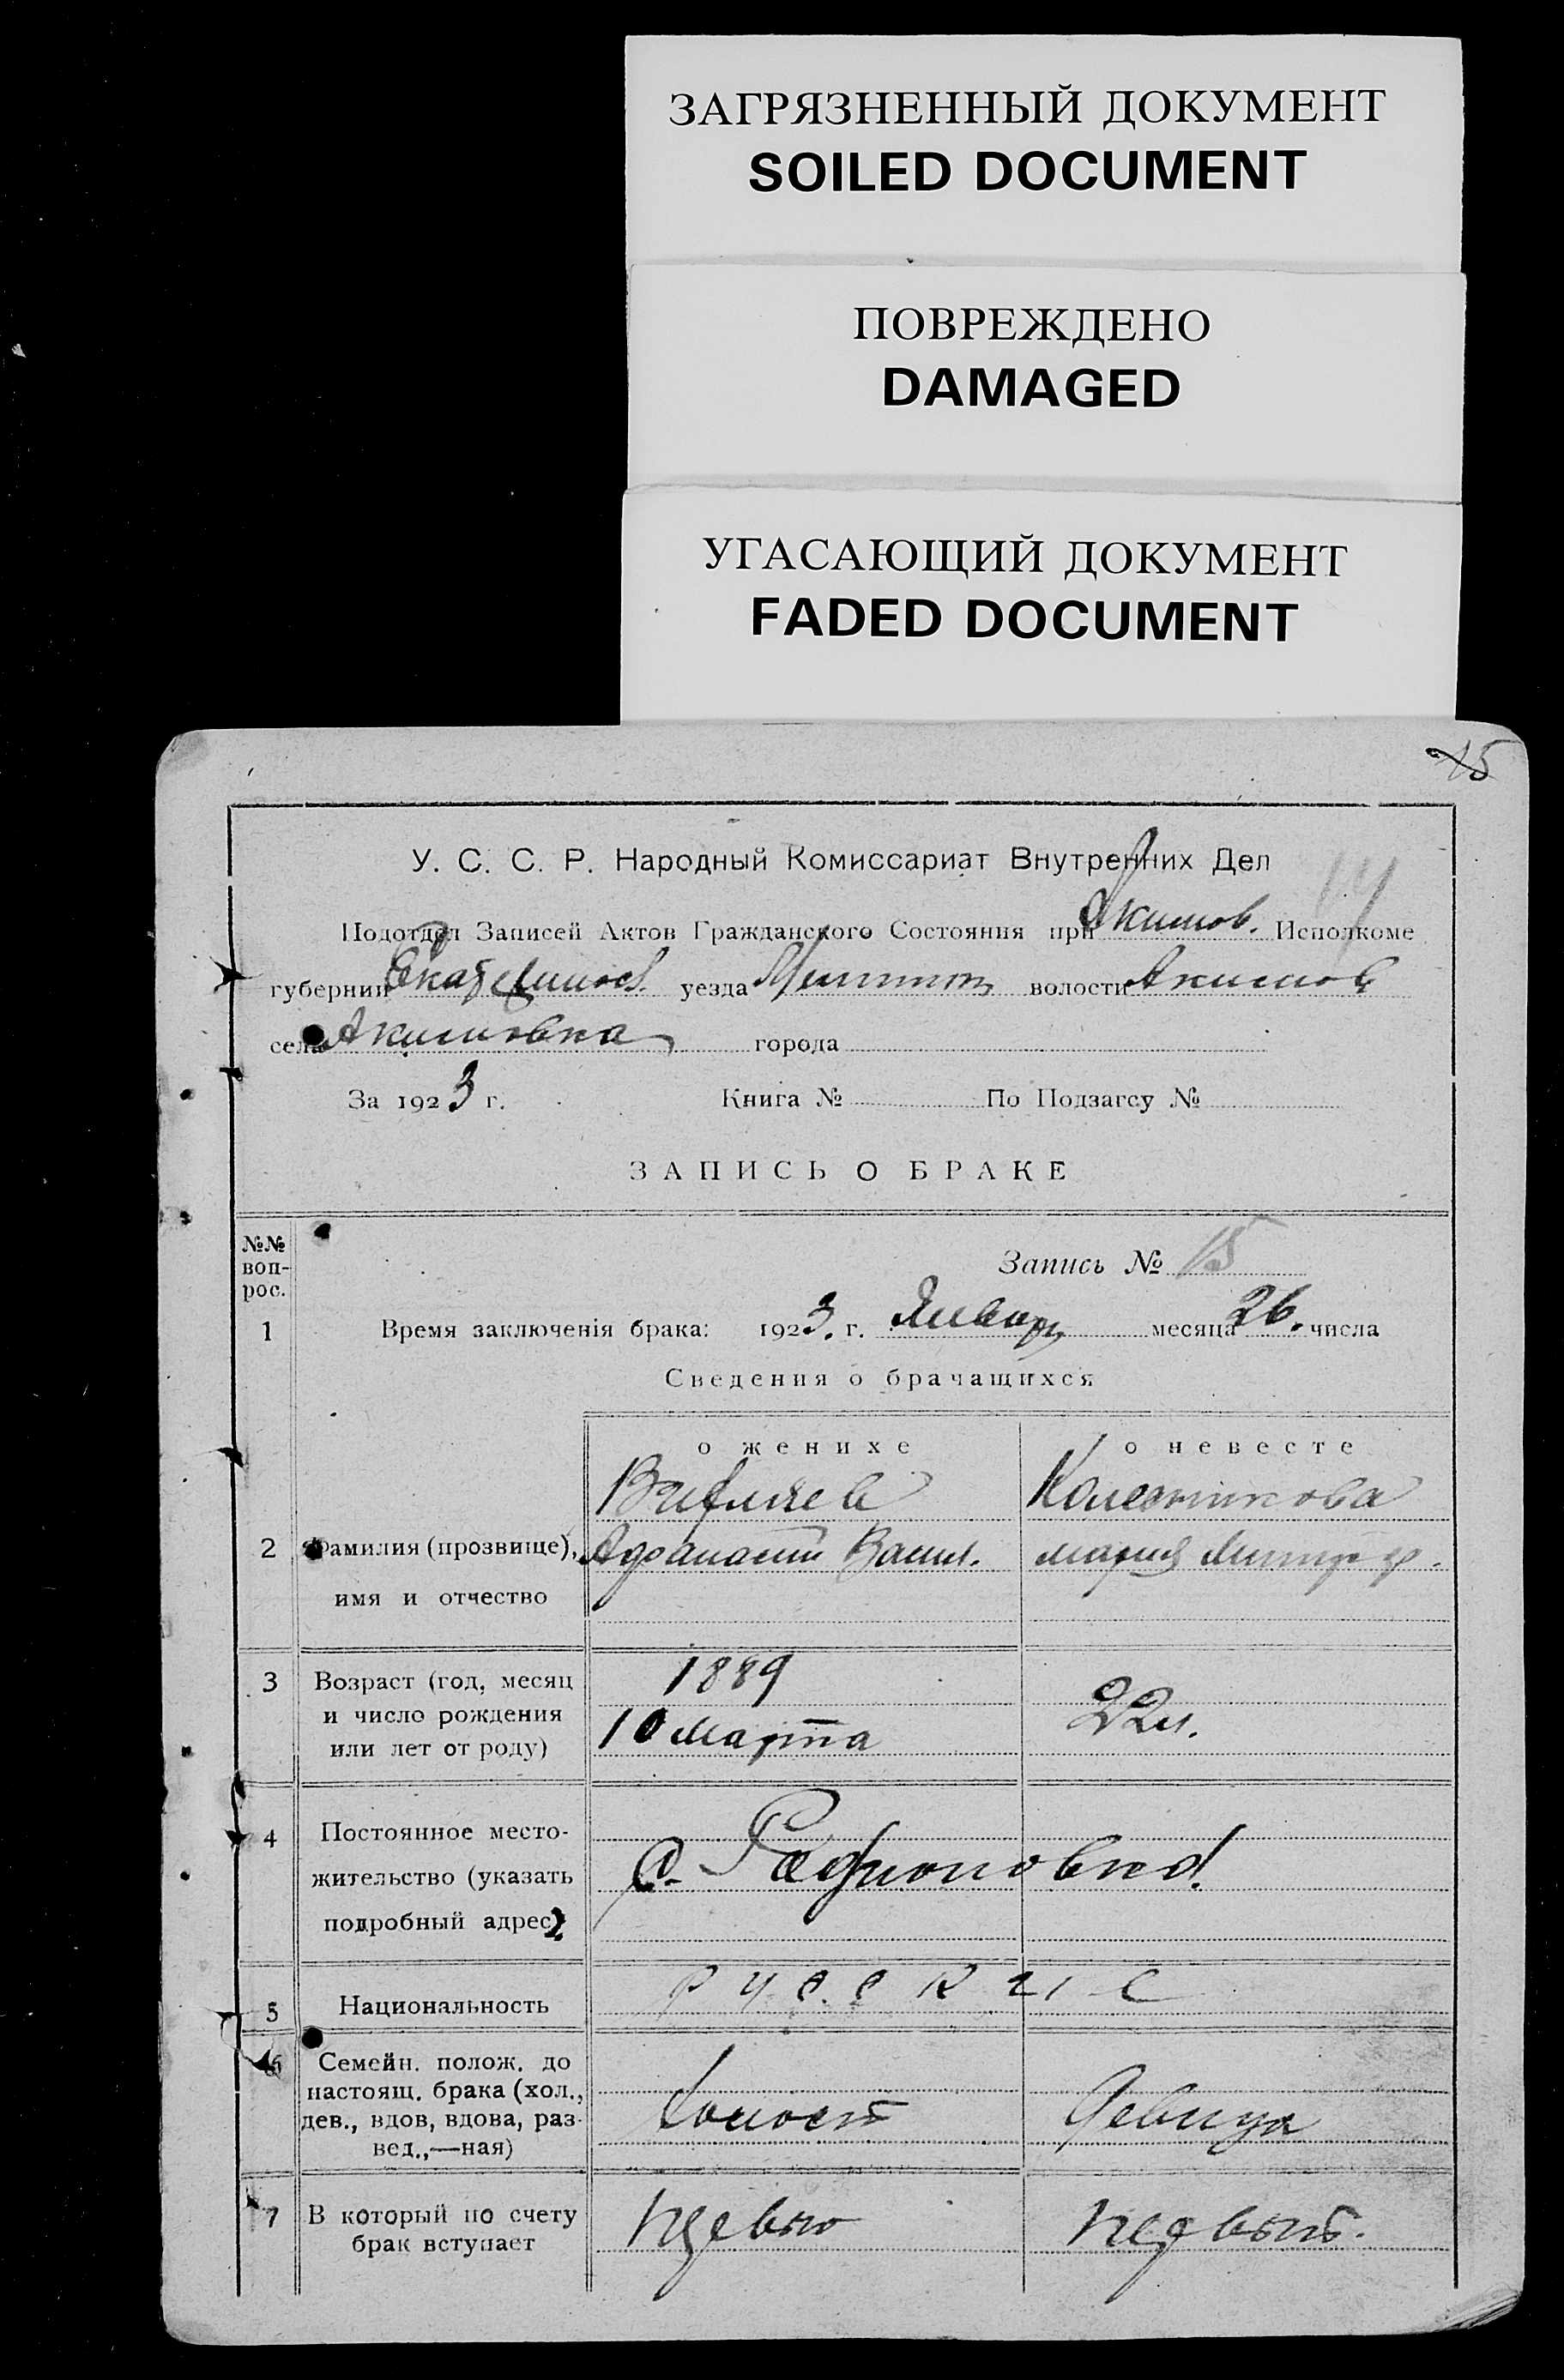 ЗАГРЯЗНЕННЫЙ ДОКУМЕНТ
SOILED DOCUMENT
ПОВРЕЖДЕНО
DAMAGED
УГАСАЮЩИЙ ДОКУМЕНТ
FADED DOCUMENT
15
У. С. С. Р. Народный Комиссариат Внутренних Дел
14
Подотдел Записей Актов Гражданского Состояния при Акимов. Исполкоме
губернии Екатеринос. уезда волости Акимов
села Акимовка города
За 1923 г. Книга № По Подзагсу №
ЗАПИСЬ О БРАКЕ
№№ воп-рос.
Запись № 15
1 Время заключенія брака: 1923. г. Январ месяца 26. числа
Сведения о брачащихся
о женихе о невесте
Колесникова
2 Фамилия (прозвище), Афанасий Васил. Мария
имя и отчество
3 Возраст (год, месяц 1889
и число рождения 22 л.
или лет от роду) 10 марта
4 Постоянное место-
жительство (указать с. Родионовка
подробный адрес)
5 Национальность русские
6 Семейн. полож. до
настоящ. брака (хол.,
дев., вдов, вдова, раз- Холост Девица
вед.,—ная)
7 В который по счету
брак вступает первый.